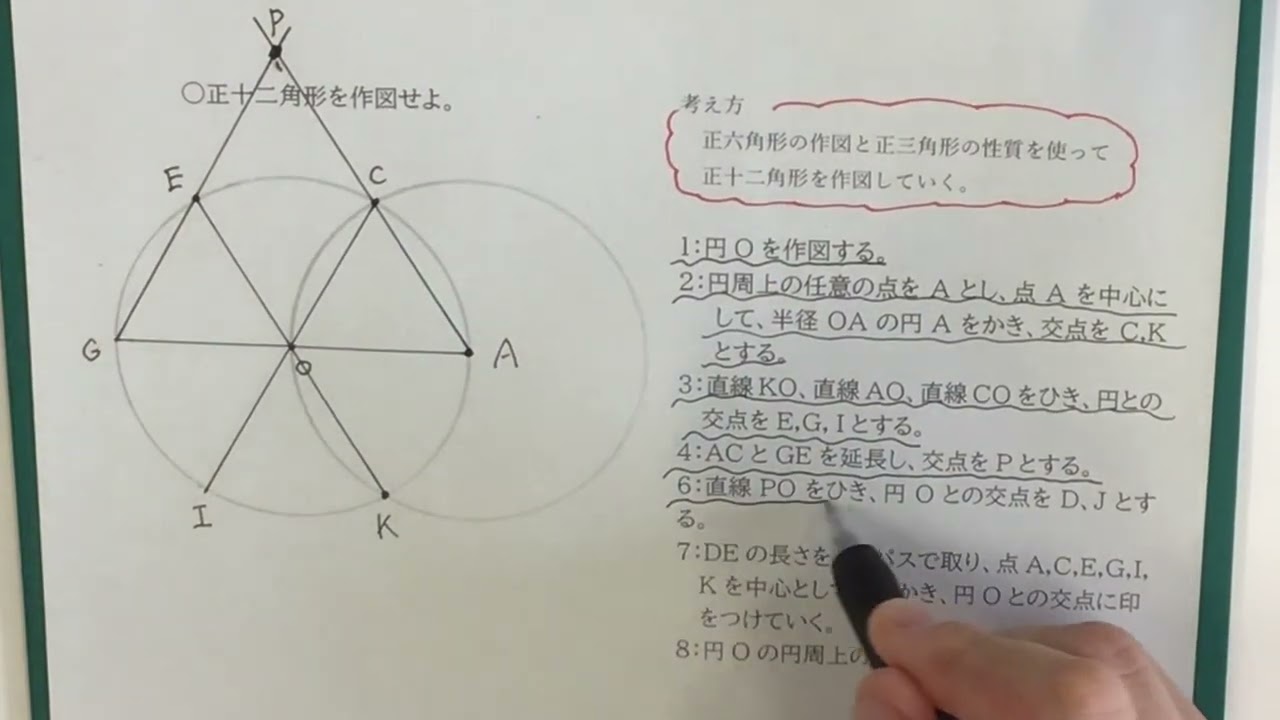 P
○正十二角形を作図せよ。
E
C
G
O
A
I
K
考え方
正六角形の作図と正三角形の性質を使って
正十二角形を作図していく。
1:円 O を作図する。
2:円周上の任意の点を A とし、点 A を中心に
して、半径 OA の円 A をかき、交点を C,K
とする。
3:直線KO、直線AO、直線COをひき、円との
交点を E,G,I とする。
4:ACと GE を延長し、交点を P とする。
6:直線 PO をひき、円 O との交点を D、J とす
る。
7:DE の長さを パスで取り、点 A,C,E,G,I,
K を中心とし かき、円 O との交点に印
をつけていく。
8:円 O の円周上の